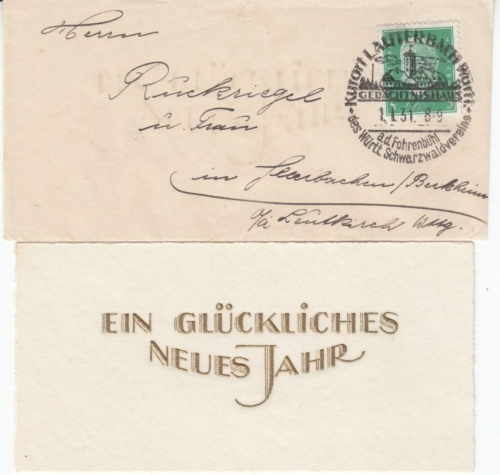 Herrn
Rückriegel
u. Frau
in
Leutkirch Wttg.
Kurort LAUTERBACH Württ.
GEDÄCHTNISHAUS
1.1.31. 8-9
a.d. Fohrenbühl
des Württ. Schwarzwaldvereins
EIN GLÜCKLICHES
NEUES JAHR